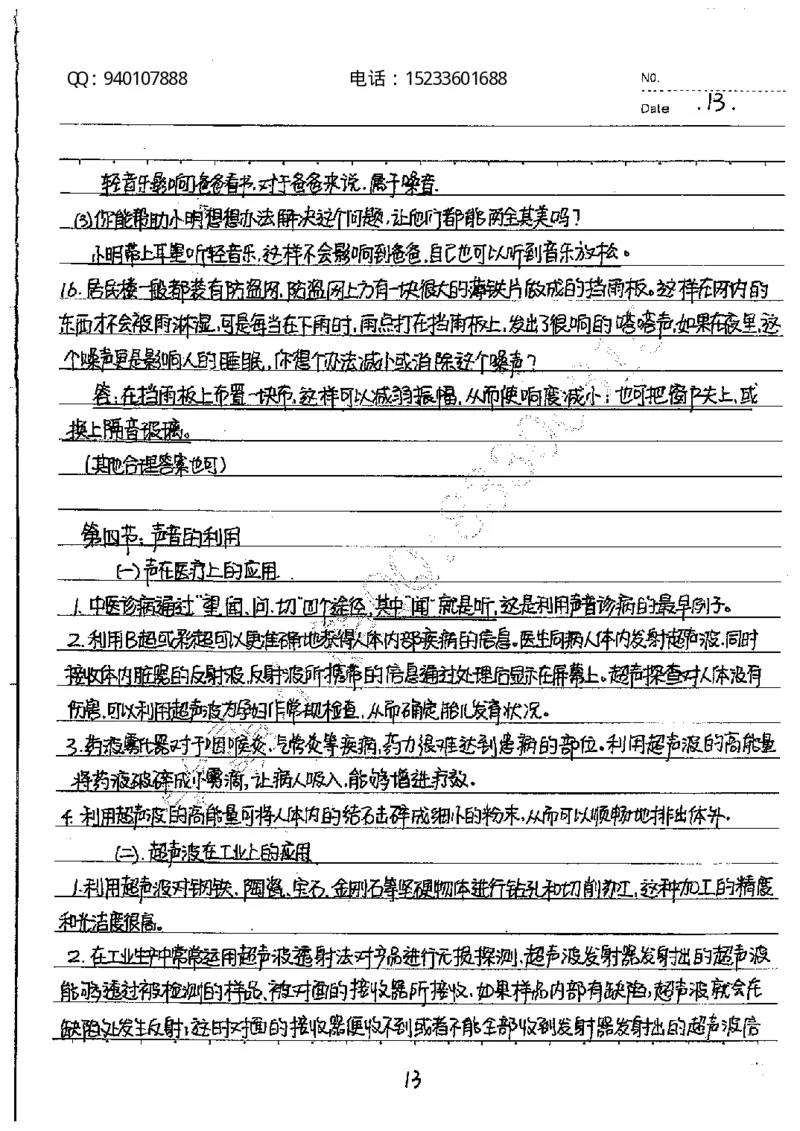 QQ：940107888 电话：15233601688 NO.
Date .13.
轻音乐影响了爸爸看书,对于爸爸来说.属于噪音.
(3)你能帮助小明想想办法解决这个问题,让他们都能两全其美吗？
小明带上耳塞听轻音乐,这样不会影响到爸爸,自己也可以听到音乐放松。
16.居民楼一般都装有防盗网,防盗网上方有一块很大的薄铁片做成的挡雨板。这样在网内的
东西才不会被雨淋湿,可是每当在下雨时,雨点打在挡雨板上,发出了很响的嗒嗒声,如果在夜里,这
个噪声更是影响人的睡眠,你想个办法减小或消除这个噪声？
答:在挡雨板上布置一块布,这样可以减弱振幅,从而使响度减小；也可把窗户关上,或
换上隔音玻璃。
(其他合理答案也可)
第四节:声音的利用
(一)声在医疗上的应用.
1.中医诊病通过"望,闻.问.切"四个途径,其中"闻"就是听,这是利用声音诊病的最早例子。
2.利用B超或彩超可以更准确地获得人体内部疾病的信息。医生向病人体内发射超声波.同时
接收体内脏器的反射波,反射波所携带的信息通过处理后显示在屏幕上。超声探查对人体没有
伤害,可以利用超声波为孕妇作常规检查,从而确定胎儿发育状况。
3.药液雾化器对于咽喉炎.气管炎等疾病,药力很难达到患病的部位。利用超声波的高能量
将药液破碎成小雾滴,让病人吸入,能够增进疗效.
4.利用超声波的高能量可将人体内的结石击碎成细小的粉末,从而可以顺畅地排出体外.
(二).超声波在工业上的应用
1.利用超声波对钢铁、陶瓷、宝石、金刚石等坚硬物体进行钻孔和切削加工,这种加工的精度
和光洁度很高。
2.在工业生产中常常运用超声波透射法对产品进行无损探测,超声波发射器发射出的超声波
能够透过被检测的样品,被对面的接收器所接收.如果样品内部有缺陷,超声波就会在
缺陷处发生反射；这时对面的接收器便收不到或者不能全部收到发射器发射出的超声波信
13